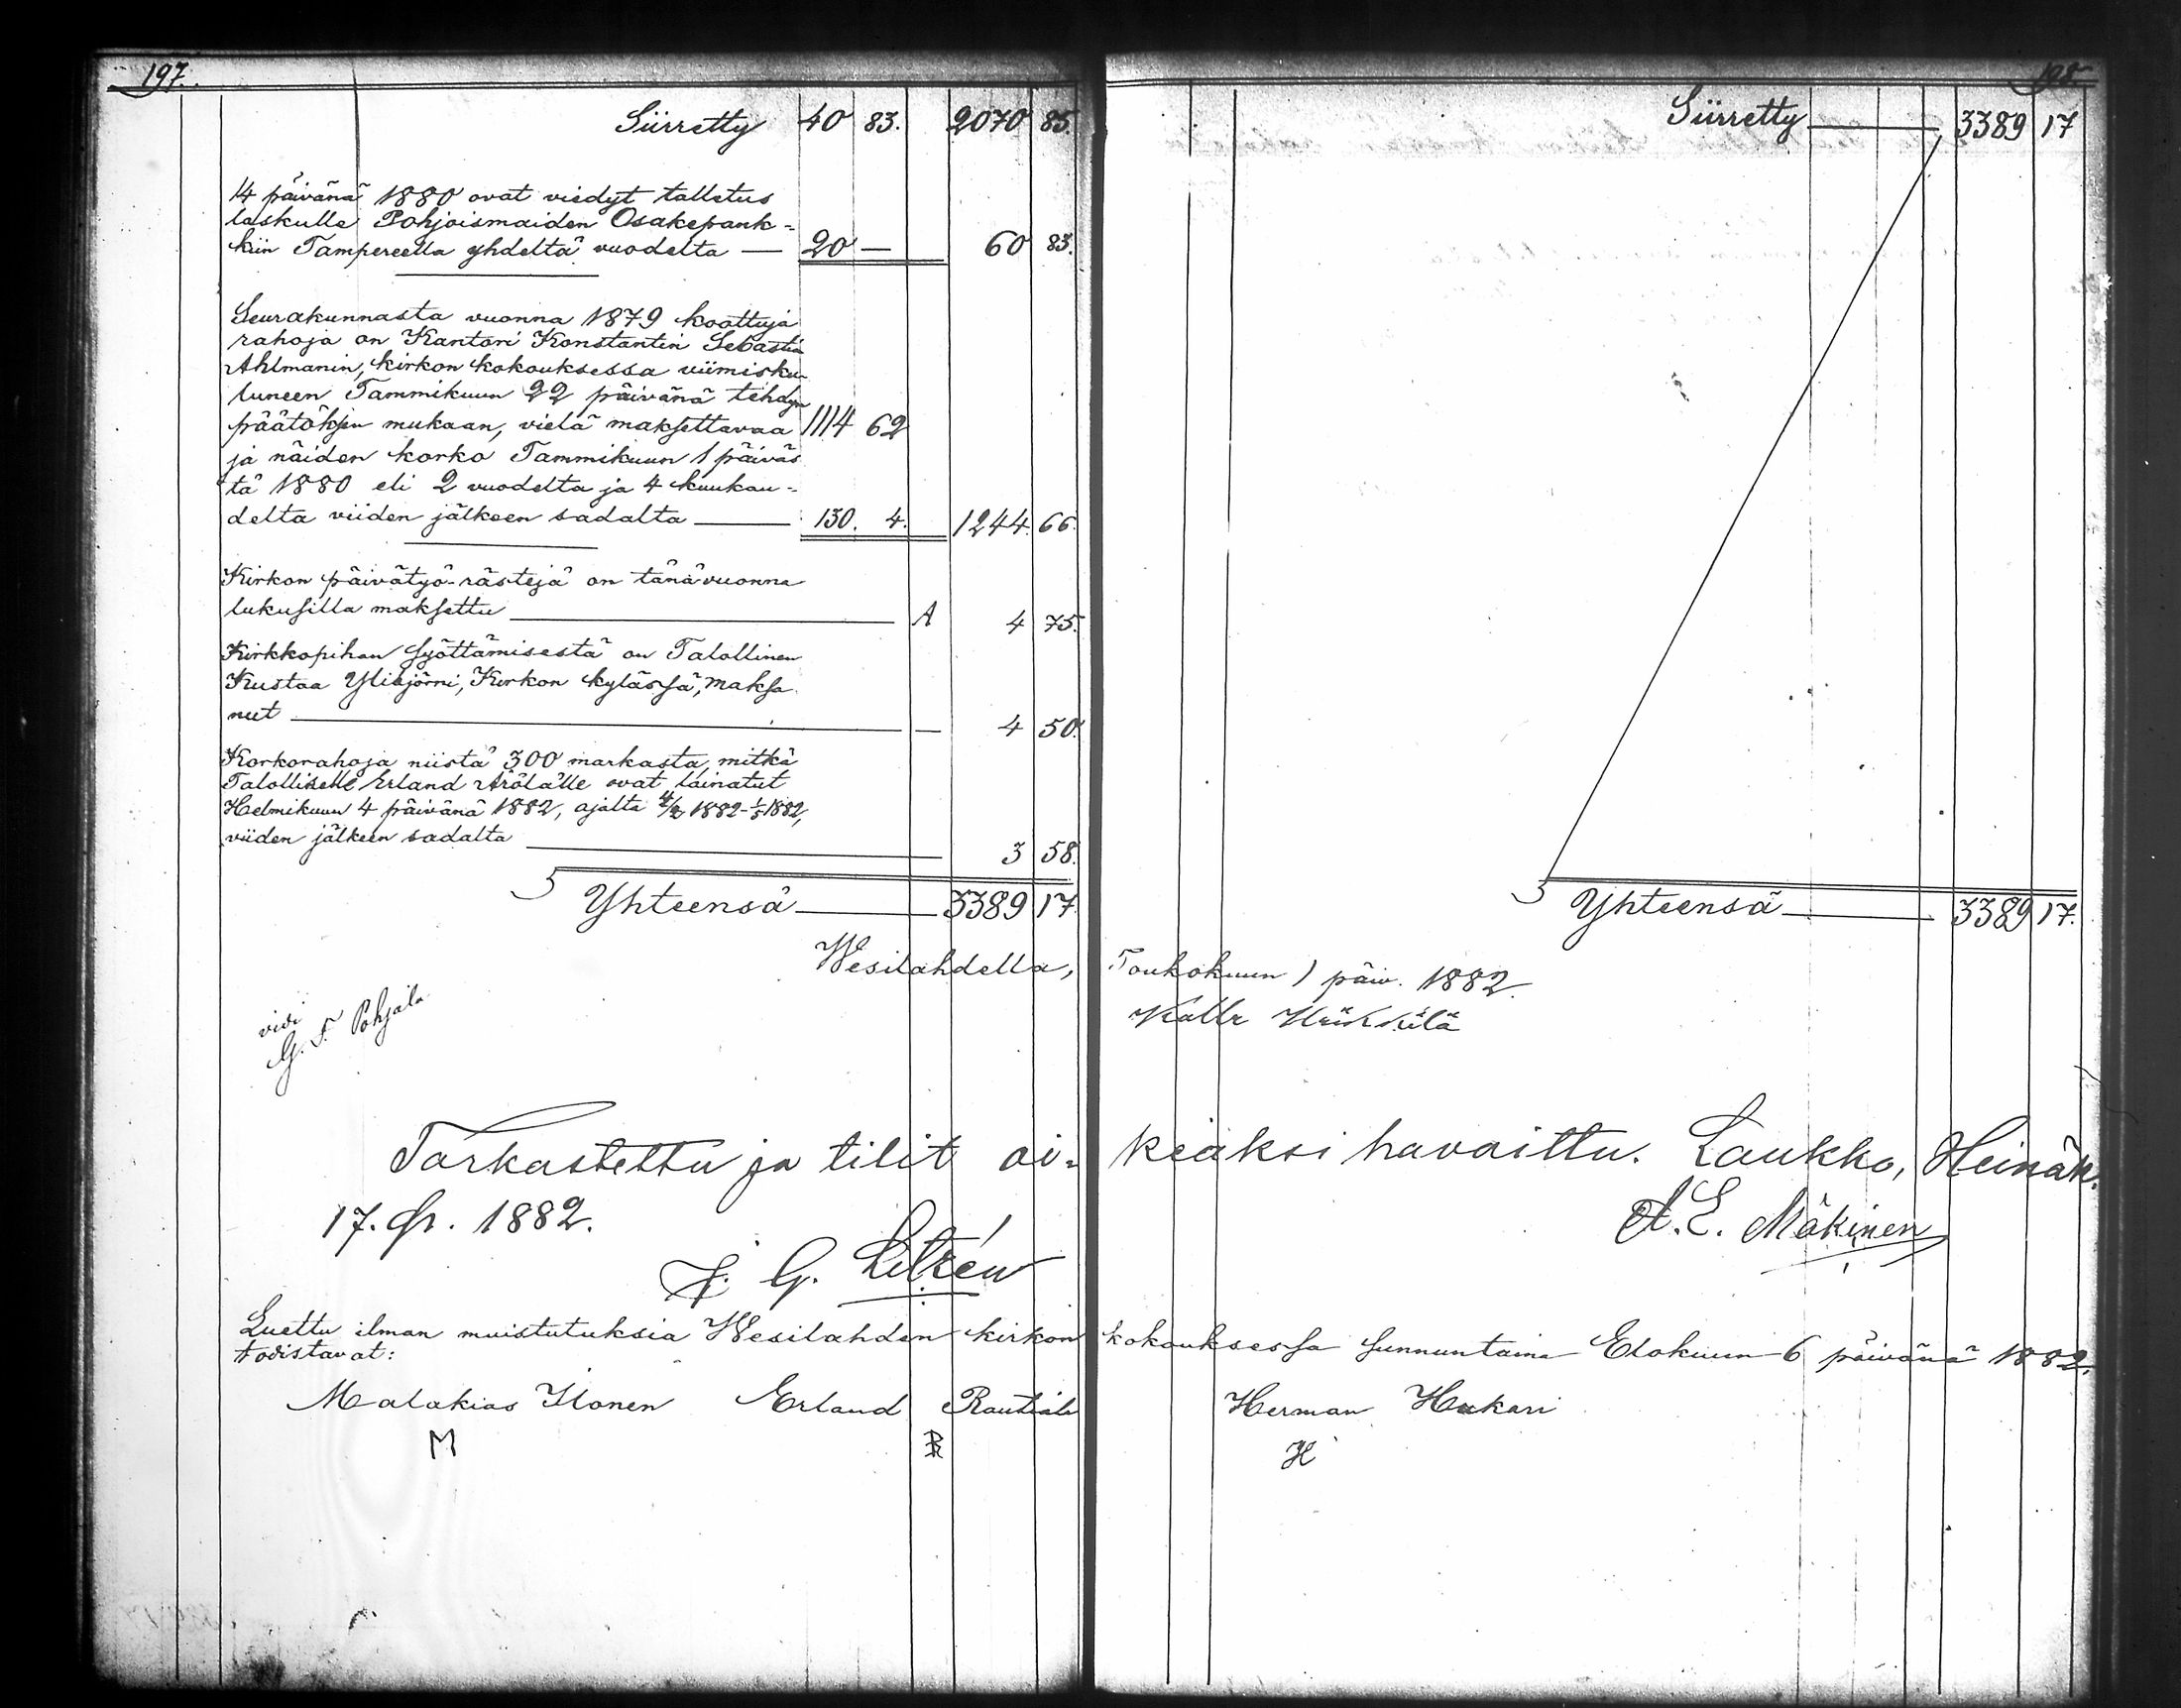 197.
Siirretty 40 83. 2070 85.
14 päivänä 1880 ovat viedyt talletus
laskulle Pohjoismaiden Osakepank=
kiin Tampereella yhdeltä vuodelta — 20 — 60 83.
Seurakunnasta vuonna 1879 koottuja
rahoja on Kantori Konstantin Sebastia
Ahlmanin, kirkon kokouksessa viimisku-
luneen Tammikuun 22 päivänä tehdyn
päätöksen mukaan, vielä maksettavaa 1114 62
ja näiden korko Tammikuun 1 päiväs
tä 1880 eli 2 vuodelta ja 4 kuukau=
delta viiden jälkeen sadalta — 130. 4. 1244. 66.
Kirkon päivätyö-rästejä on tänä vuonna
lukusilla maksettu — A 4 75.
Kirkkopihan syöttämisestä on Talollinen
Kustaa Ylisjörni, Kirkon kylässä, maksa
nut — — 4 50.
Korkorahoja niistä 300 markasta, mitkä
Talolliselle Erland Arölälle ovat lainatut
Helmikuun 4 päivänä 1882, ajalta 4/2 1882-1/5 1882,
viiden jälkeen sadalta — 3 58.
Yhteensä — 3389 17
198.
Siirretty — 3389 17
Yhteensä — 3389 17.
Wesilahdella, Toukokuun 1 päiv. 1882.
Kalle
vidi
G. F. Pohjala
Tarkastettu ja tilit oi= keaksi havaittu. Laukko, Heinäk.
17. p. 1882.
A. E. Mäkinen
J. G. Litzén
Luettu ilman muistutuksia Wesilahden kirkon kokouksessa sunnuntaina Elokuun 6 päivänä 1882.
todistavat:
Malakias Ilonen Erland Rautiala Herman Hukari
M R H